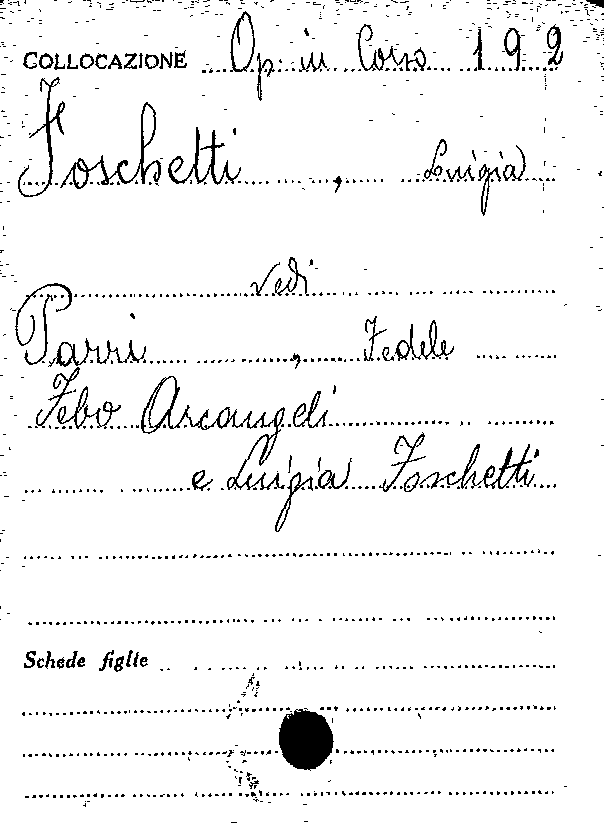 COLLOCAZIONE Op. in Corso 192
Foschetti, Luigia
Vedi
Parri, Fedele
Febo Arcangeli
e Luigia Foschetti
Schede figlie